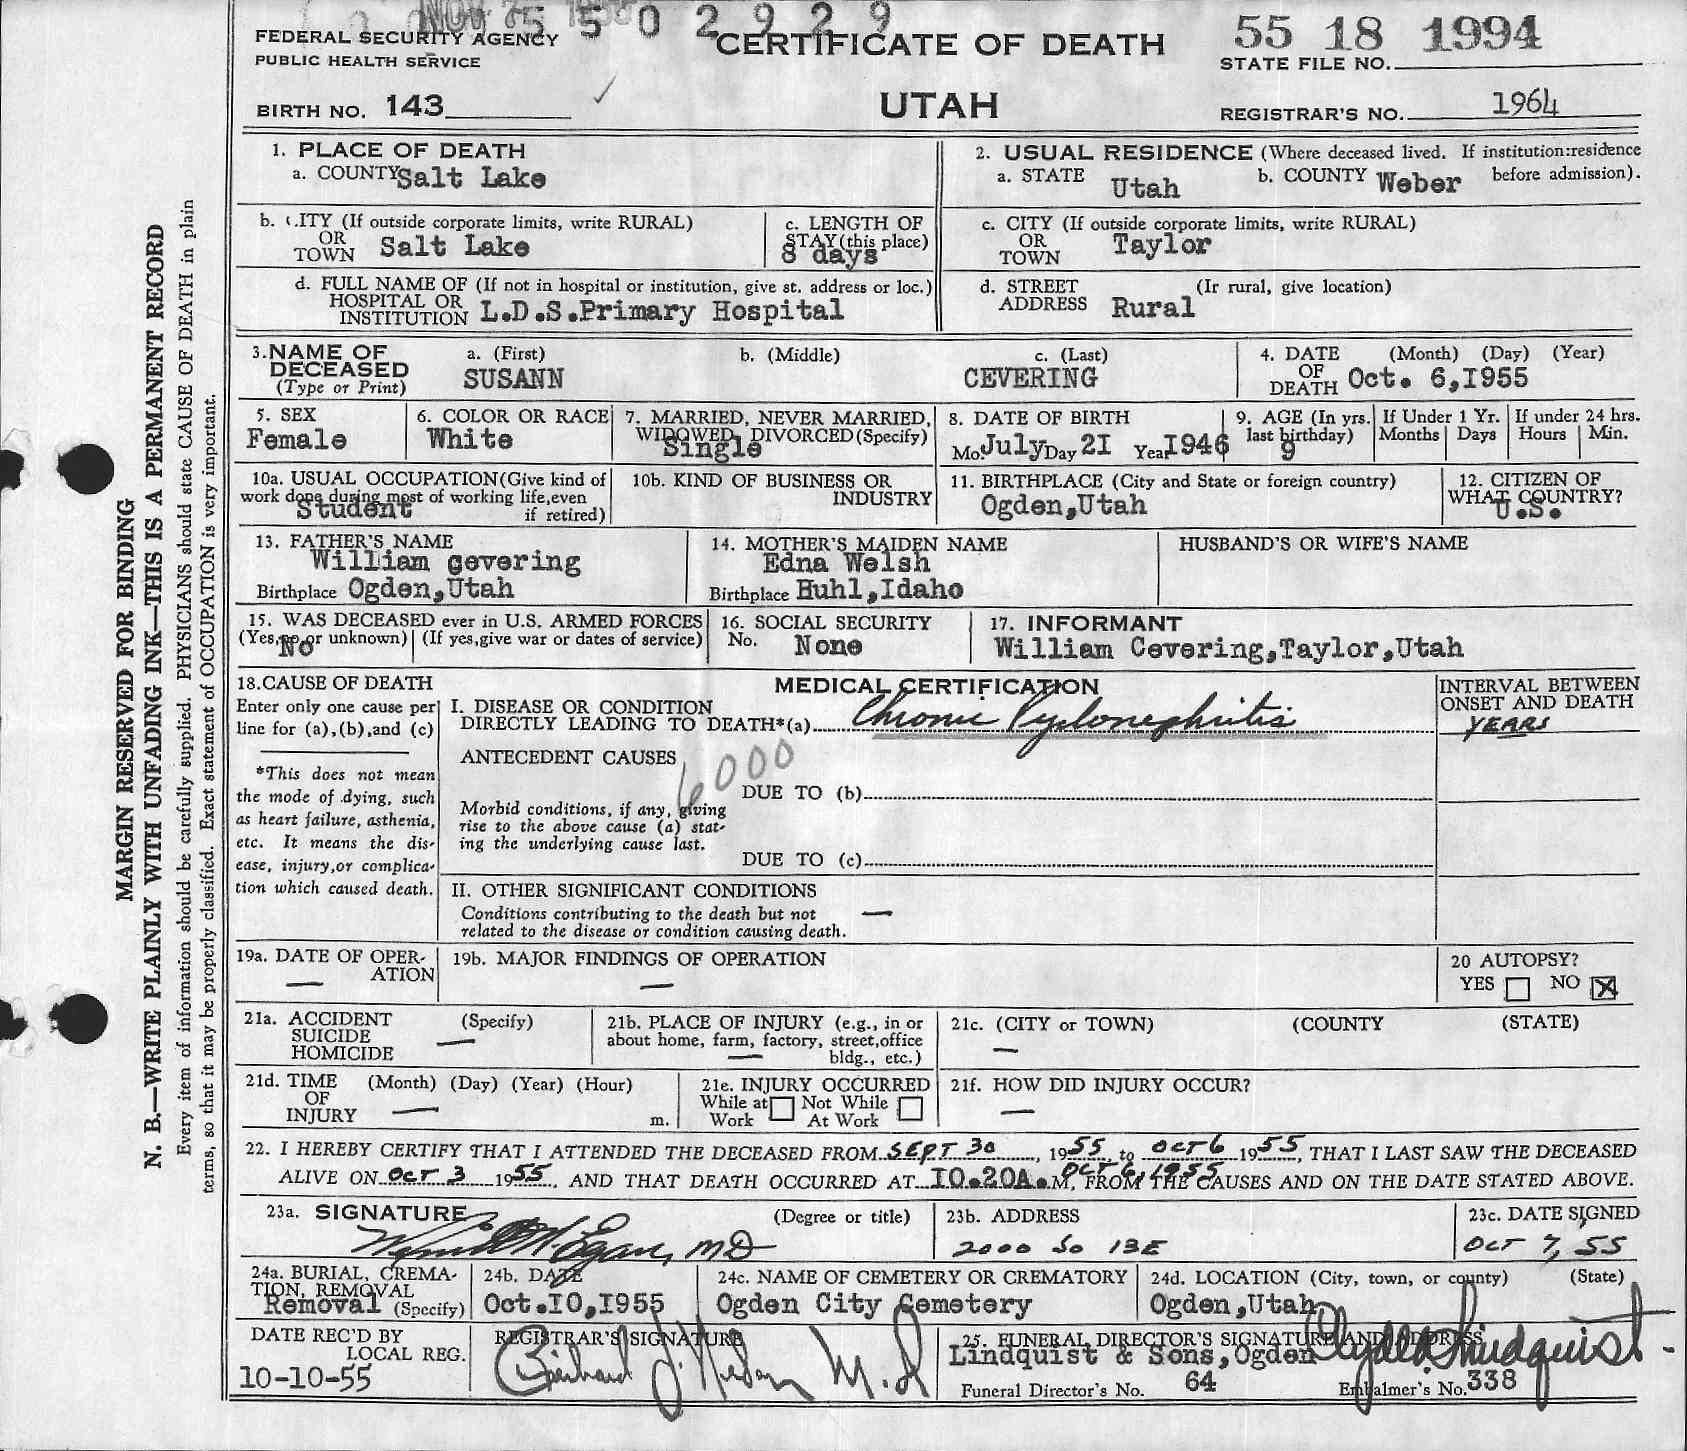 NOV
5502929
FEDERAL SECURITY AGENCY
PUBLIC HEALTH SERVICE
CERTIFICATE OF DEATH
55 18 1994
STATE FILE NO.
BIRTH NO. 143
UTAH
REGISTRAR'S NO. 1964
1. PLACE OF DEATH
a. COUNTY Salt Lake
2. USUAL RESIDENCE (Where deceased lived. If institution:residence before admission).
a. STATE Utah b. COUNTY Weber
b. CITY (If outside corporate limits, write RURAL)
OR
TOWN Salt Lake
c. LENGTH OF
STAY (this place)
8 days
c. CITY (If outside corporate limits, write RURAL)
OR
TOWN Taylor
d. FULL NAME OF (If not in hospital or institution, give st. address or loc.)
HOSPITAL OR
INSTITUTION L.D.S.Primary Hospital
d. STREET (Ir rural, give location)
ADDRESS Rural
3. NAME OF DECEASED
(Type or Print)
a. (First) SUSANN
b. (Middle)
c. (Last) CEVERING
4. DATE OF DEATH (Month) (Day) (Year)
Oct. 6,I955
5. SEX
Female
6. COLOR OR RACE
White
7. MARRIED, NEVER MARRIED,
WIDOWED, DIVORCED (Specify)
Single
8. DATE OF BIRTH
Mo. July Day 2I Year I946
9. AGE (In yrs. last birthday)
9
If Under 1 Yr.
Months Days
If under 24 hrs.
Hours Min.
10a. USUAL OCCUPATION (Give kind of
work done during most of working life,even
if retired)
Student
10b. KIND OF BUSINESS OR
INDUSTRY
11. BIRTHPLACE (City and State or foreign country)
Ogden,Utah
12. CITIZEN OF
WHAT COUNTRY?
U.S.
13. FATHER'S NAME
William Gevering
Birthplace Ogden,Utah
14. MOTHER'S MAIDEN NAME
Edna Welsh
Birthplace Buhl,Idaho
HUSBAND'S OR WIFE'S NAME
15. WAS DECEASED ever in U.S. ARMED FORCES
(Yes,no,or unknown) (If yes,give war or dates of service)
No
16. SOCIAL SECURITY
No. None
17. INFORMANT
William Cevering,Taylor,Utah
18. CAUSE OF DEATH
Enter only one cause per
line for (a),(b),and (c)
*This does not mean
the mode of dying, such
as heart failure, asthenia,
etc. It means the dis-
ease, injury,or complica-
tion which caused death.
MEDICAL CERTIFICATION
I. DISEASE OR CONDITION
DIRECTLY LEADING TO DEATH*(a) Chronic Pyelonephritis
INTERVAL BETWEEN
ONSET AND DEATH
YEARS
ANTECEDENT CAUSES
6000
DUE TO (b)
Morbid conditions, if any, giving
rise to the above cause (a) stat-
ing the underlying cause last.
DUE TO (c)
II. OTHER SIGNIFICANT CONDITIONS
Conditions contributing to the death but not
related to the disease or condition causing death.
—
19a. DATE OF OPER-
ATION
—
19b. MAJOR FINDINGS OF OPERATION
—
20 AUTOPSY?
YES NO X
21a. ACCIDENT (Specify)
SUICIDE
HOMICIDE
—
21b. PLACE OF INJURY (e.g., in or
about home, farm, factory, street,office
bldg., etc.)
—
21c. (CITY or TOWN) (COUNTY (STATE)
—
21d. TIME (Month) (Day) (Year) (Hour)
OF
INJURY — m.
21e. INJURY OCCURRED
While at Not While
Work At Work
21f. HOW DID INJURY OCCUR?
—
22. I HEREBY CERTIFY THAT I ATTENDED THE DECEASED FROM SEPT 30, 1955, to OCT 6 1955, THAT I LAST SAW THE DECEASED
ALIVE ON OCT 3 1955, AND THAT DEATH OCCURRED AT I0.20A.M, OCT 6, 1955 FROM THE CAUSES AND ON THE DATE STATED ABOVE.
23a. SIGNATURE (Degree or title)
Egan, MD
23b. ADDRESS
2000 So 13E
23c. DATE SIGNED
OCT 7, 55
24a. BURIAL, CREMA-
TION, REMOVAL
Removal (Specify)
24b. DATE
Oct.I0,I955
24c. NAME OF CEMETERY OR CREMATORY
Ogden City Cemetery
24d. LOCATION (City, town, or county) (State)
Ogden,Utah
DATE REC'D BY
LOCAL REG.
10-10-55
REGISTRAR'S SIGNATURE
25. FUNERAL DIRECTOR'S SIGNATURE AND ADDRESS
Lindquist & Sons,Ogden Clyde Lindquist
Funeral Director's No. 64
Embalmer's No. 338
MARGIN RESERVED FOR BINDING
N. B.—WRITE PLAINLY WITH UNFADING INK—THIS IS A PERMANENT RECORD
Every item of information should be carefully supplied. PHYSICIANS should state CAUSE OF DEATH in plain
terms, so that it may be properly classified. Exact statement of OCCUPATION is very important.